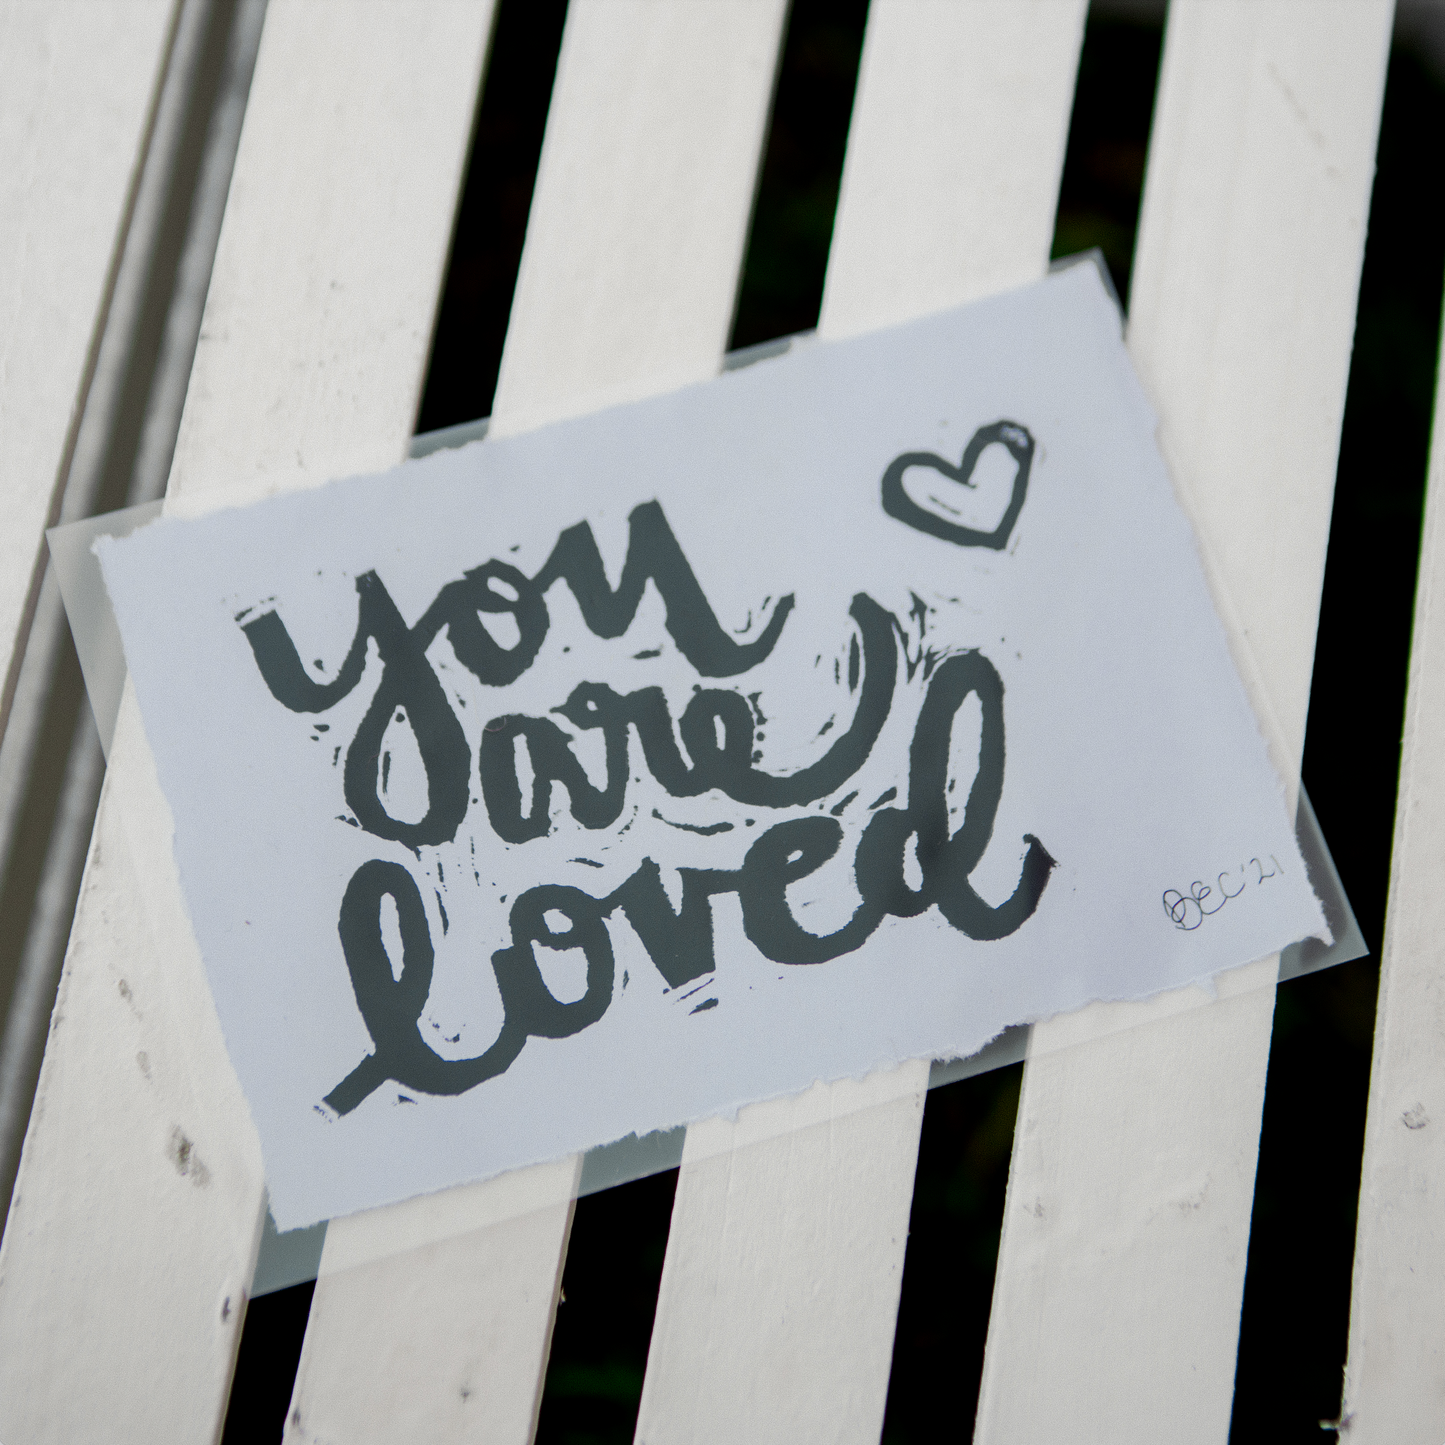 you
are
loved
DEC'21